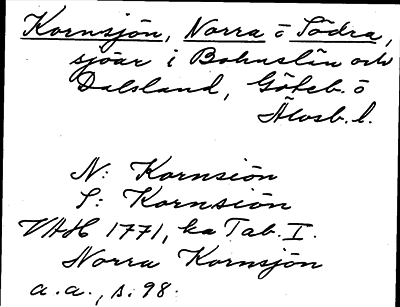 Kornsjön, Norra o Södra,
sjöar i Bohuslän och
Dalsland, Göteb. o
Älvsb. l.
N: Kornsiön
S: Kornsiön
VAH 1771, ka Tab. I.
Norra Kornsjön
a. a., s. 98.